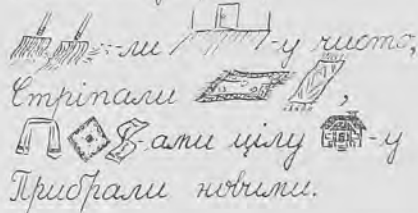 -ли -у чисто,
Стріпали ,
-ами цілу -у
Прибрали новими.